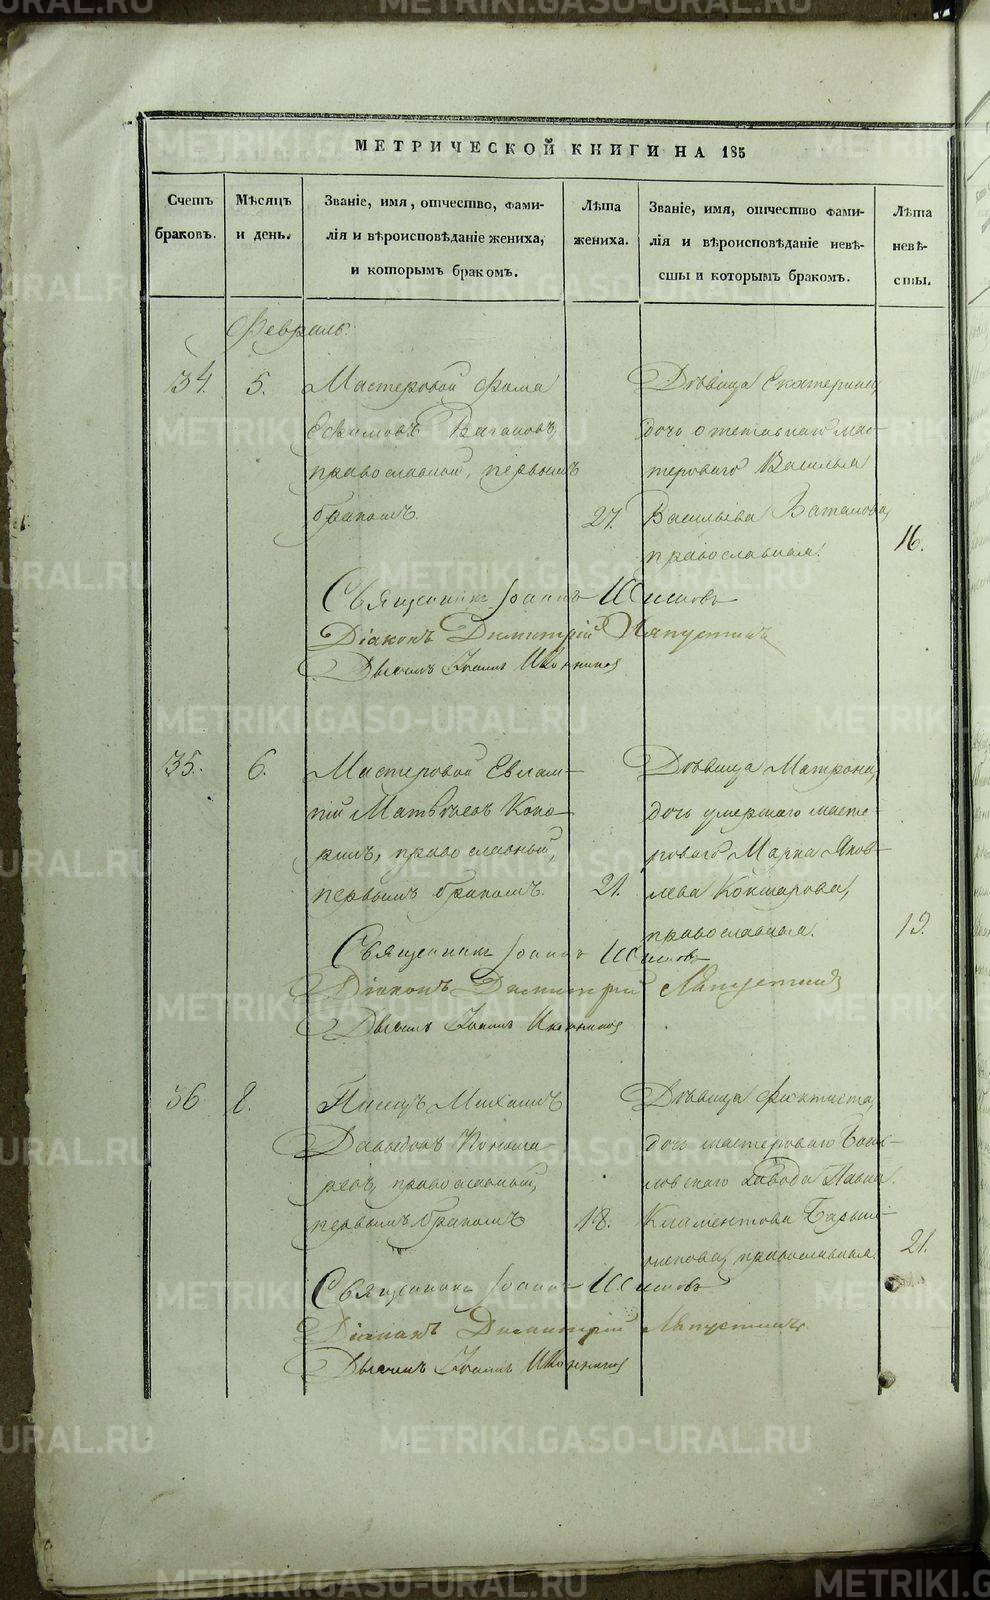 МЕТРИЧЕСКОЙ КНИГИ НА 185
Счетъ браковъ.
Мѣсяцъ и день.
Званіе, имя, отчество, фами-
лія и вѣроисповѣданіе жениха,
и которымъ бракомъ.
Лѣта
жениха.
Званіе, имя, отчество фами-
лія и вѣроисповѣданіе невѣ-
сты и которымъ бракомъ.
Лѣта
невѣ-
сты.
Февраль.
34. 5.
Мастеровой Фома
Ефимовъ Ваганов,
православной, первымъ
бракомъ. 27.
Дѣвица Екатерина,
дочь отставнаго мас-
тероваго Василья
Васильева Баталова,
православная. 16.
Священникъ Іоаннъ
Діаконъ Димитрій Ляпустинъ
Дьячекъ Иконниковъ
35. 6.
Мастеровой Евлам-
пій Матвѣевъ Коко-
ринъ, православный,
первымъ бракомъ. 21.
Дѣвица Матрона,
дочь умершаго масте-
роваго Марка Яков-
лева Кокшарова,
православная. 19.
Священникъ Іоаннъ
Діаконъ Димитрій Ляпустинъ
Дьячекъ Иконниковъ
36 8.
Писецъ Михаилъ
Давыдовъ
православный,
первымъ бракомъ 18.
Дѣвица Фиктиста,
дочь мастероваго
завода Павла
Климентова
православная. 21.
Священникъ Іоаннъ
Діаконъ Димитрій Ляпустинъ
Дьячекъ Иконниковъ
METRIKI.GASO-URAL.RU